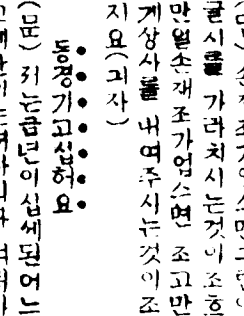 글시를 가라치시는것이조흐
만일손재조가업스면 조고만
게상사를 내여주시는것이조
지요(긔자)
동경가고십허요
(문) 저는금년이십세된어느